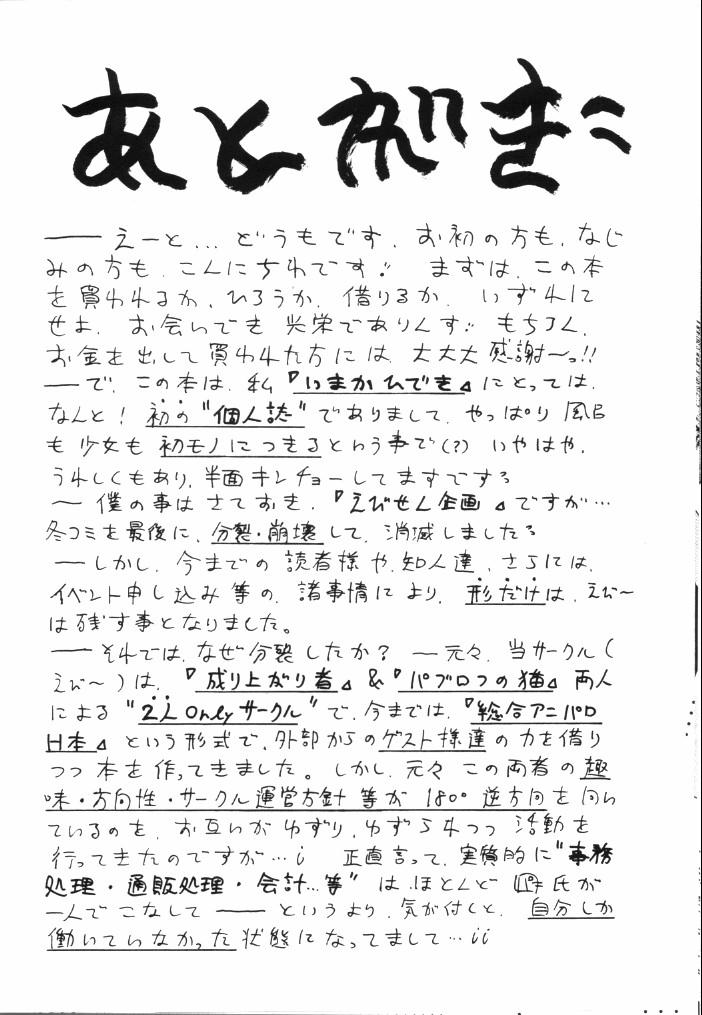 あとがき
── えーと… どうもです. お初の方も, なじ
みの方も, こんにちわです!! まずは, この本
を買われるか, ひろうか, 借りるか, いずれに
せよ, お会いでき 光栄でありんす!! もちろん,
お金を出して買われた方には, 大大大感謝〜っ!!
── で, この本は, 私『いまかひでき』にとっては,
なんと! 初の"個人誌"でありまして, やっぱり 風呂
も 少女も 初モノにつきるという事で(?) いやはや,
うれしくもあり, 半面 キンチョーしてますですぅ
〜 僕の事は さておき, 『えびせん企画』ですが…
冬コミを最後に, 分裂・崩壊して, 消滅しましたぅ
── しかし, 今までの 読者様や, 知人達, さらには,
イベント申し込み等の, 諸事情により, 形だけは, えび〜
は残す事となりました。
── それでは, なぜ分裂したか? ── 元々, 当サークル(
えび〜)は, 『成り上がり者』&『パブロフの猫』両人
による "2人Onlyサークル" で, 今までは,『総合アニパロ
H本』という形式で, 外部からのゲスト様達の力を借り
つつ 本を作ってきました。しかし, 元々 この両者の趣
味・方向性・サークル運営方針等が 180° 逆方向を向い
ているのを, お互いが ゆずり, ゆずられつつ 活動を
行ってきたのですが…¡ 正直言って, 実質的に"事務
処理・通販処理・会計…等" は ほとんど 氏が
一人で こなして ── というより, 気が付くと, 自分しか
働いていなかった状態になってまして…¡¡